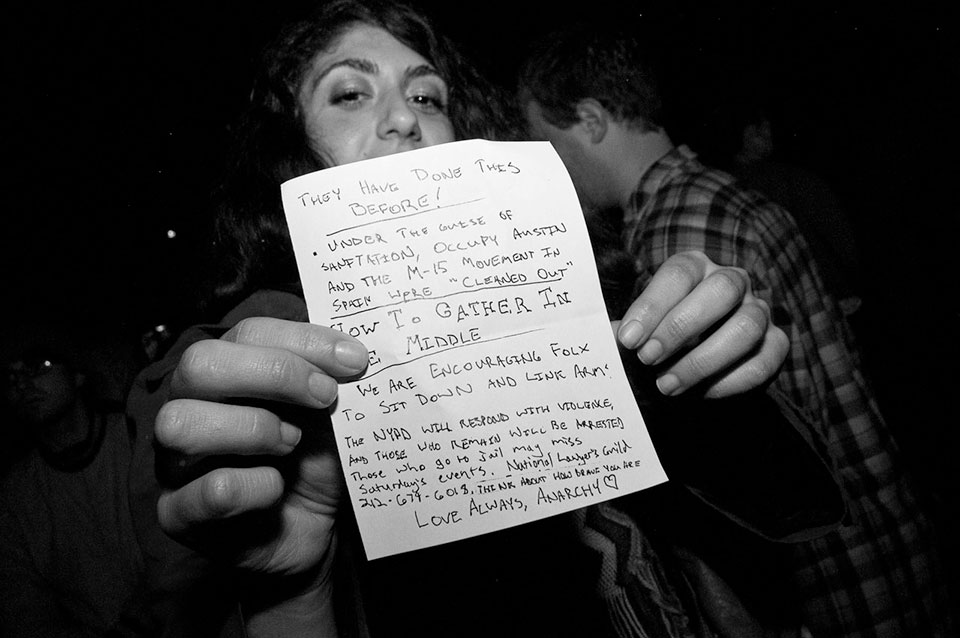 THEY HAVE DONE THIS
BEFORE!
• UNDER THE GUISE OF
SANITATION, OCCUPY AUSTIN
AND THE M-15 MOVEMENT IN
SPAIN WERE "CLEANED OUT"
HOW TO GATHER IN
E MIDDLE
WE ARE ENCOURAGING FOLX
TO SIT DOWN AND LINK ARMS.
THE NYPD WILL RESPOND WITH VIOLENCE,
AND THOSE WHO REMAIN WILL BE ARRESTED
Those who go to Jail may miss
Saturday's events. National Lawyer's Guild
212-679-6018. THINK ABOUT HOW BRAVE YOU ARE
LOVE ALWAYS, ANARCHY ♡